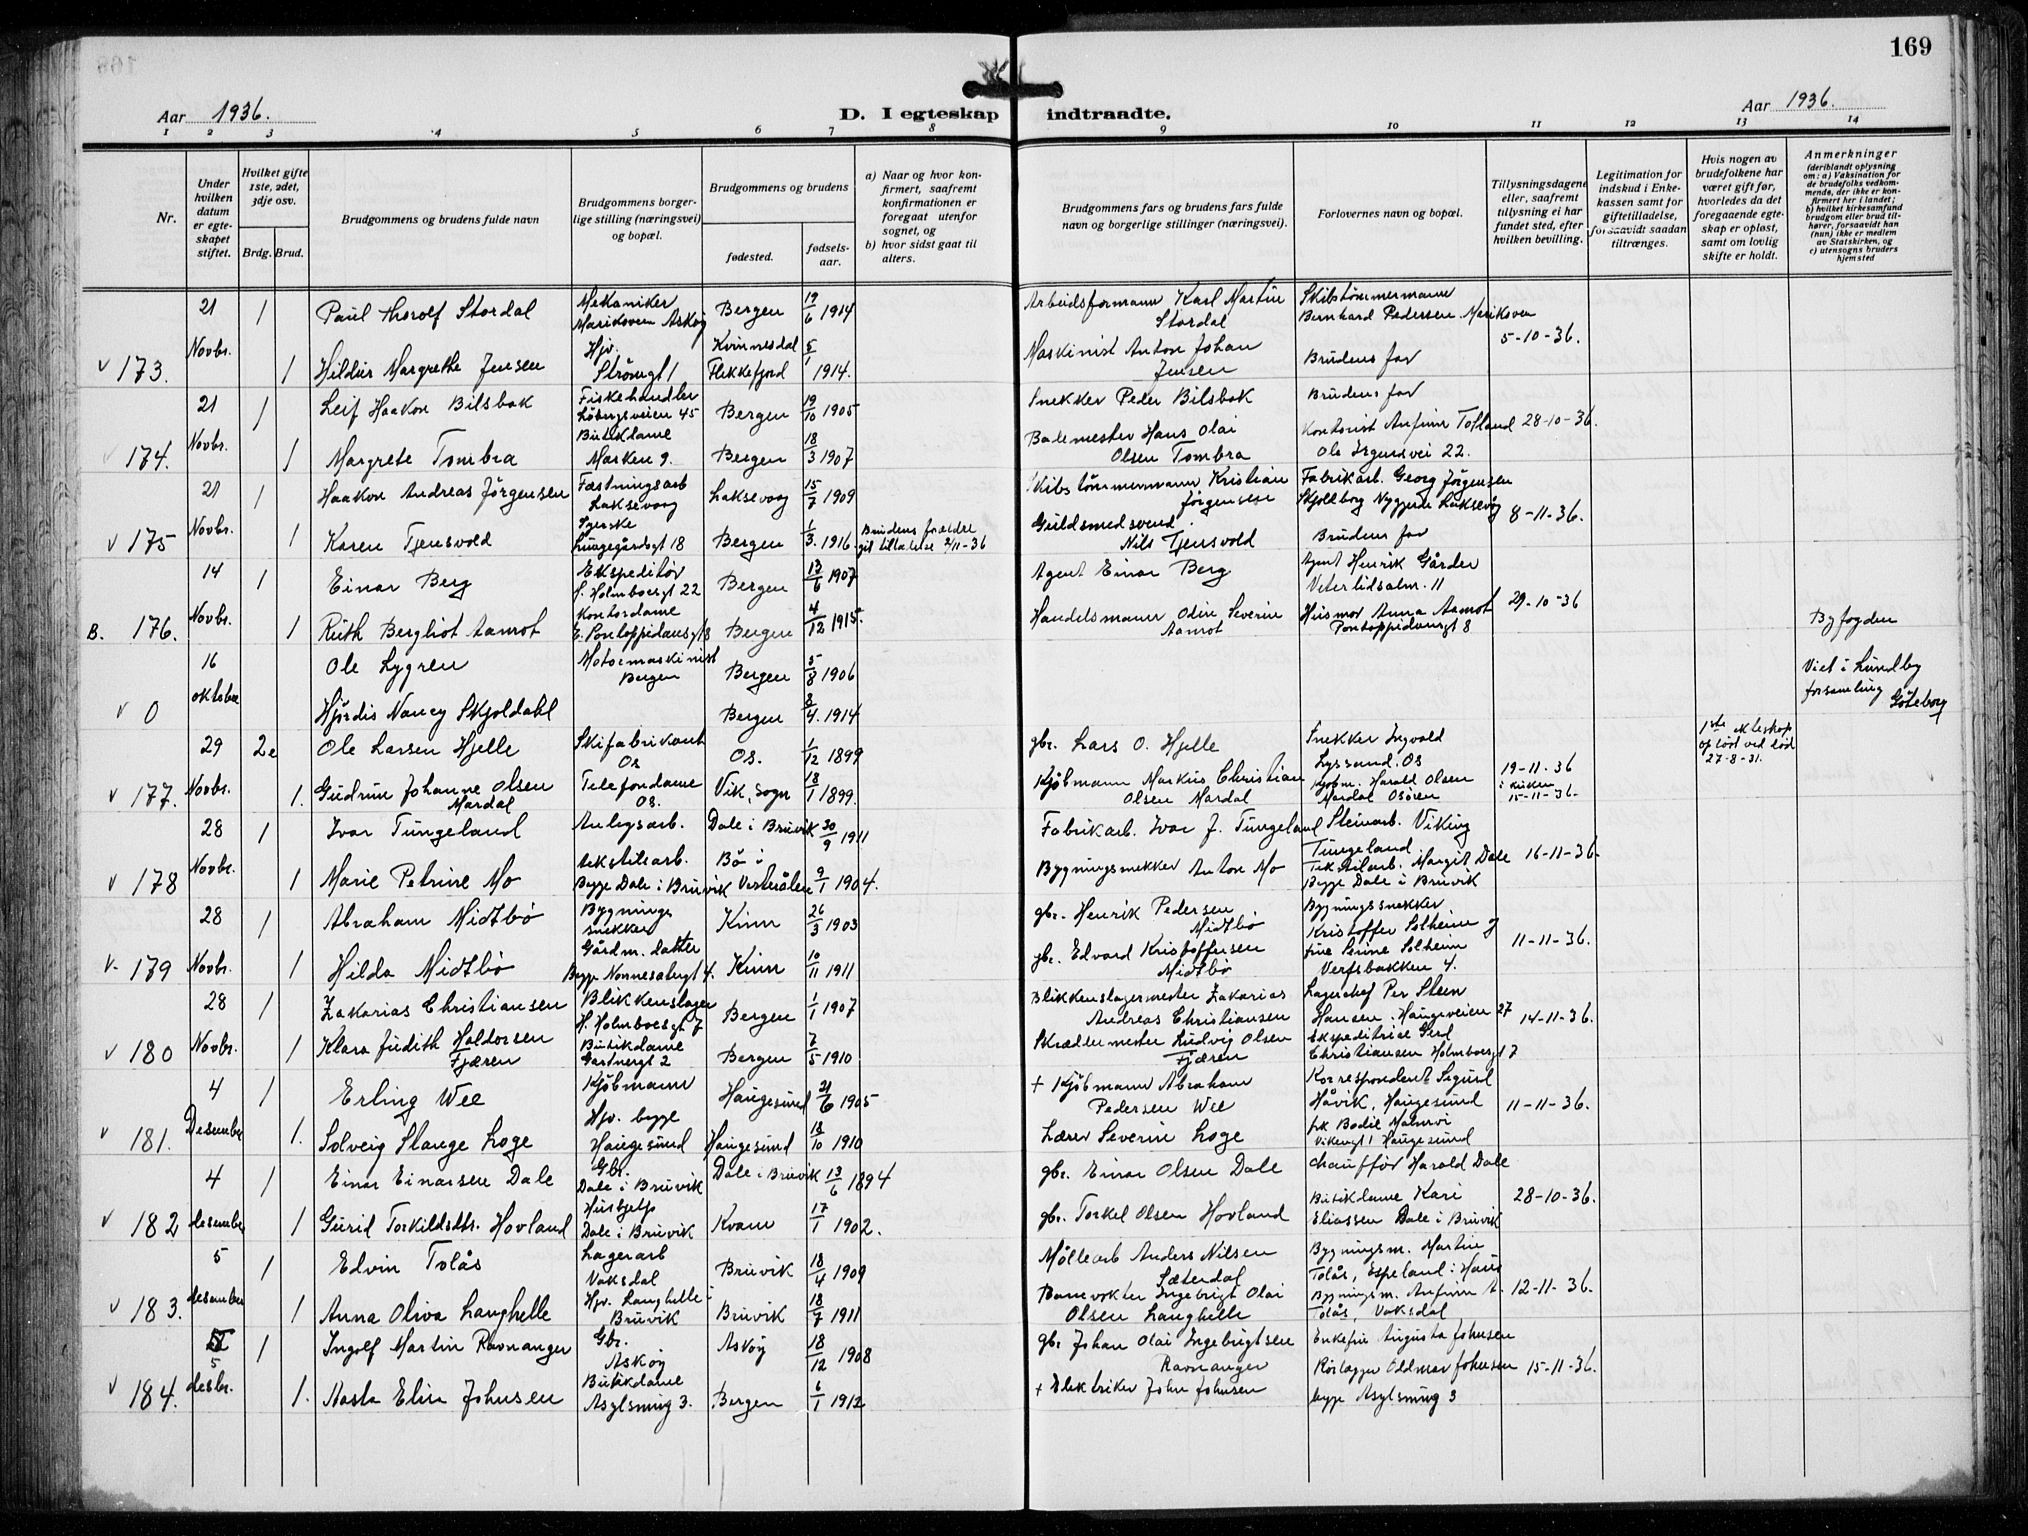 169
Aar 1936.
D. I egteskap indtraadte.
Aar 1936.
1 2 3 4 5 6 7 8 9 10 11 12 13 14
Nr.
Under hvilken datum er egteskapet stiftet.
Hvilket gifte 1ste, 2det, 3dje osv.
Brdg. Brud.
Brudgommens og brudens fulde navn
Brudgommens borgerlige stilling (næringsvei) og bopæl.
Brudgommens og brudens
fødested.
fødselsaar.
a) Naar og hvor konfirmert, saafremt konfirmationen er foregaat utenfor sognet, og
b) hvor sidst gaat til alters.
Brudgommens fars og brudens fars fulde navn og borgerlige stillinger (næringsvei).
Forlovernes navn og bopæl.
Tillysningsdagene eller, saafremt tillysning ei har fundet sted, efter hvilken bevilling.
Legitimation for indskud i Enkekassen samt for giftetilladelse, forsaavidt saadan tiltrænges.
Hvis nogen av brudefolkene har været gift før, hvorledes da det foregaaende egteskap er opløst, samt om lovlig skifte er holdt.
Anmerkninger
(deriblandt oplysning om: a) Vaksination for de brudefolks vedkommende, der ikke er konfirmert her i landet; b) hvilket kirkesamfund brudgom eller brud tilhører, forsaavidt han (hun) ikke er medlem av Statskirken, og c) utensogns bruders hjemsted
21 1 Paul Thorolf Stordal Mekaniker Marikoven Askøy Bergen 19/6 1914 Arbeidsformann Karl Martin Stordal Skibstømmermann Bernhard Pedersen Marikoven
v 173. Novbr. 1 Hildur Margrethe Jensen Hjv. Strømgt 1 Kvinnesdal Flekkefjord 5/1 1914. Maskinist Anton Johan Jensen Brudens far 5-10-36.
21 1 Leif Haakon Bilsbak Fiskehandler Løbergsveien 45 Bergen 19/10 1905 Snekker Peder Bilsbak Brudens far
v 174. Novbr. 1 Margrete Tombra Butikdame Marken 9. Bergen 18/3 1907 Bademester Hans Olai Olsen Tombra Kontorist Anfinn Tolland Ole Irgensvei 22. 28-10-36.
21 1 Haakon Andreas Jørgensen Fæstningsarb Laksevaag Laksevaag 15/7 1909 Skibstømmermann Kristian Jørgensen Fabrikarb. Georg Jørgensen Skjoldborg Nygjerde Laksevåg
v 175 Novbr. 1 Karen Tjensvold Syerske Lungegårdsgt 18 Bergen 1/3. 1916. Brudens foreldre git tillatelse 2/11-36 Guldsmedsvend Nils Tjensvold Brudens far 8-11-36.
14 1 Einar Berg Ekspeditør H. Holmboesgt 22 Bergen 13/6 1907 Agent Einar Berg Agent Henrik Gårder Vetrlidsalm. 11
B. 176. Novbr. 1 Ruth Bergliot Aamot Kontordame E. Pontoppidansgt 8 Bergen 4/12 1915. Handelsmann Odin Severin Aamot Husmor Anna Aamot Pontoppidansgt 8 29-10-36 Byfogden
16 Ole Lygren Motormaskinist Bergen Bergen 5/8 1906 Viet i Lundby forsamling Göteborg
v 0 oktober Hjørdis Nancy Skjoldahl Bergen 8/4. 1914
29 2e Ole Larsen Hjelle Skifabrikant Os Os. 1/12 1899 gbr. Lars O. Hjelle Snekker Ingvald Lyssand. Os 1ste ekteskap opløst ved død 27-8-31.
v 177. Novbr. 1. Gudrun Johanne Olsen Mardal Telefondame Os. Vik, Sogn 18/1 1899. Kjøbmann Markus Christian Olsen Mardal Kjøbm. Harald Olsen Mardal Osøren 19-11-36 i kirken 15-11-36.
28 1 Ivar Tungeland Anlegsarb. Dale i Bruvik 30/9 1911 Fabrikarb. Ivar J. Tungeland Steinarb. Viking Tungeland
v 178 Novbr. 1 Marie Petrine Mo tekstilarb. Begge Dale i Bruvik Bø i Vesterålen 9/1 1904. Bygningsnekker Anton Mo Tekstilarb. Margit Dale Begge Dale i Bruvik 16-11-36.
28 1 Abraham Midtbø Bygningssnekker Kinn 26/3 1903 gbr. Henrik Pedersen Midtbø Bygningssnekker Kristoffer Solheim og
v. 179 Novbr. 1 Hilda Midtbø Gårdm. datter Begge Nonnesætergt 4. Kinn 10/11 1911 gbr. Edvard Kristoffersen Midtbø frue Serine Solheim Verfsbakken 4. 11-11-36.
28 1 Zakarias Christiansen Blikkenslager H. Holmboesgt 7 Bergen 1/1 1907 Blikkenslagermester Zakarias Andreas Christiansen Lagerchef Per Steen Hansen. Haugeveien 27
v 180 Novbr. 1 Klara Judith Haldorsen Fjæren Butikdame Gartnergt 2 Bergen 7/5 1910 Skræddermester Ludvig Olsen Fjæren Ekspeditrise Gerd Christiansen Holmboesgt 7 14-11-36.
4 1 Erling Wee Kjøbmann Haugesund 21/6 1905 + Kjøbmann Abraham Pedersen Wee Korrespondent Sigurd Håvik, Haugesund
v 181. Desember 1. Solveig Stange Loge Hjv. begge Haugesund Haugesund 18/10 1910 Lærer Severin Loge frk Bodil Malmei Vikengt 1 Haugesund 11-11-36.
4 1 Einar Einarsen Dale Gbr. Dale i Bruvik Dale i Bruvik 13/6 1894 gbr. Einar Olsen Dale chauffør Harald Dale
v 182 desember 1 Gurid Torkildsdtr. Hovland Hushjelp Dale i Bruvik Kvam 17/1 1902. gbr. Torkel Olsen Hovland Butikdame Kari Eliassen Dale i Bruvik 28-10-36.
5 1 Edvin Tolås Lagerarb Vaksdal Bruvik 18/4 1909 Møllearb Anders Nilsen Sæterdal Bygningsm. Martin Tolås, Espeland i Haus
v 183. desember 1 Anna Oliva Langhelle Hjv. Langhelle i Bruvik Bruvik 18/7 1911 Banevokter Ingebrigt Olai Olsen Langhelle Bygningsm. Anfinn A. Tolås, Vaksdal 12-11-36.
5 1 Ingolf Martin Ravnanger Gbr. Askøy Askøy 18/12 1908 gbr Johan Olai Ingebrigtsen Ravnanger Enkefru Augusta Johnsen
v 184. desbr. 1. Aasta Elin Johnsen Butikdame Asylsmug 3. Bergen 6/1 1912 + Elektriker John Johnsen Rørlegger Oldmar Johnsen begge Asylsmug 3 15-11-36.